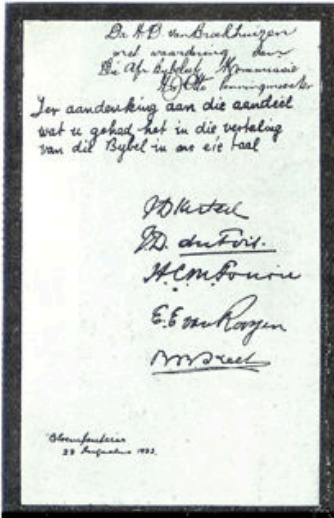 Dr. H. D. van Broekhuizen
met waardering van
Die Afr. Bybel Kommissie
Otto penningmeester
Ter aandenking aan die aandeel
wat u gehad het in die vertaling
van die Bybel in ons eie taal
J D Kestell
J. D. du Toit.
H. C. M. Fourie
E. E. van Rooyen
B B Keet
Bloemfontein
27 Augustus 1933.